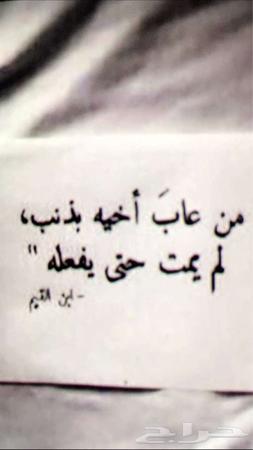 من عابَ أخيه بذنب،
لم يمت حتى يفعله "
- ابن القيم
حراج